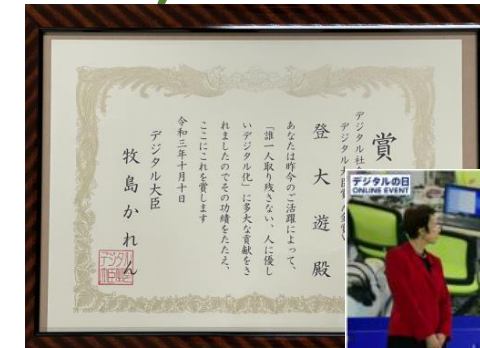 賞
デジタル社会
デジタル大臣賞
登大遊殿
あなたは昨今のご活躍によって、
「誰一人取り残さない、人に優し
いデジタル化」に多大な貢献をさ
れましたのでその功績をたたえ、
ここにこれを賞します
令和三年十月十日
デジタル大臣
牧島かれん
デジタルの日
ONLINE EVENT